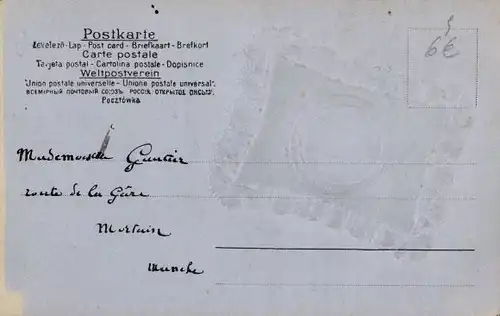 Postkarte
Levelező-Lap - Post card - Briefkaart - Brefkort
Carte postale
Tarjeta postal - Cartolina postale - Dopisnice
Weltpostverein
"Union postale universelle - Unione postale universal".
ВСЕМІРНЫЙ ПОЧТОВЫЙ СОЮЗЪ. РОССІЯ. ОТКРЫТОЕ ПИСЬМО.
Pocztówka
6€
Mademoiselle Gautier
route de la Gare
Mortain
Manche